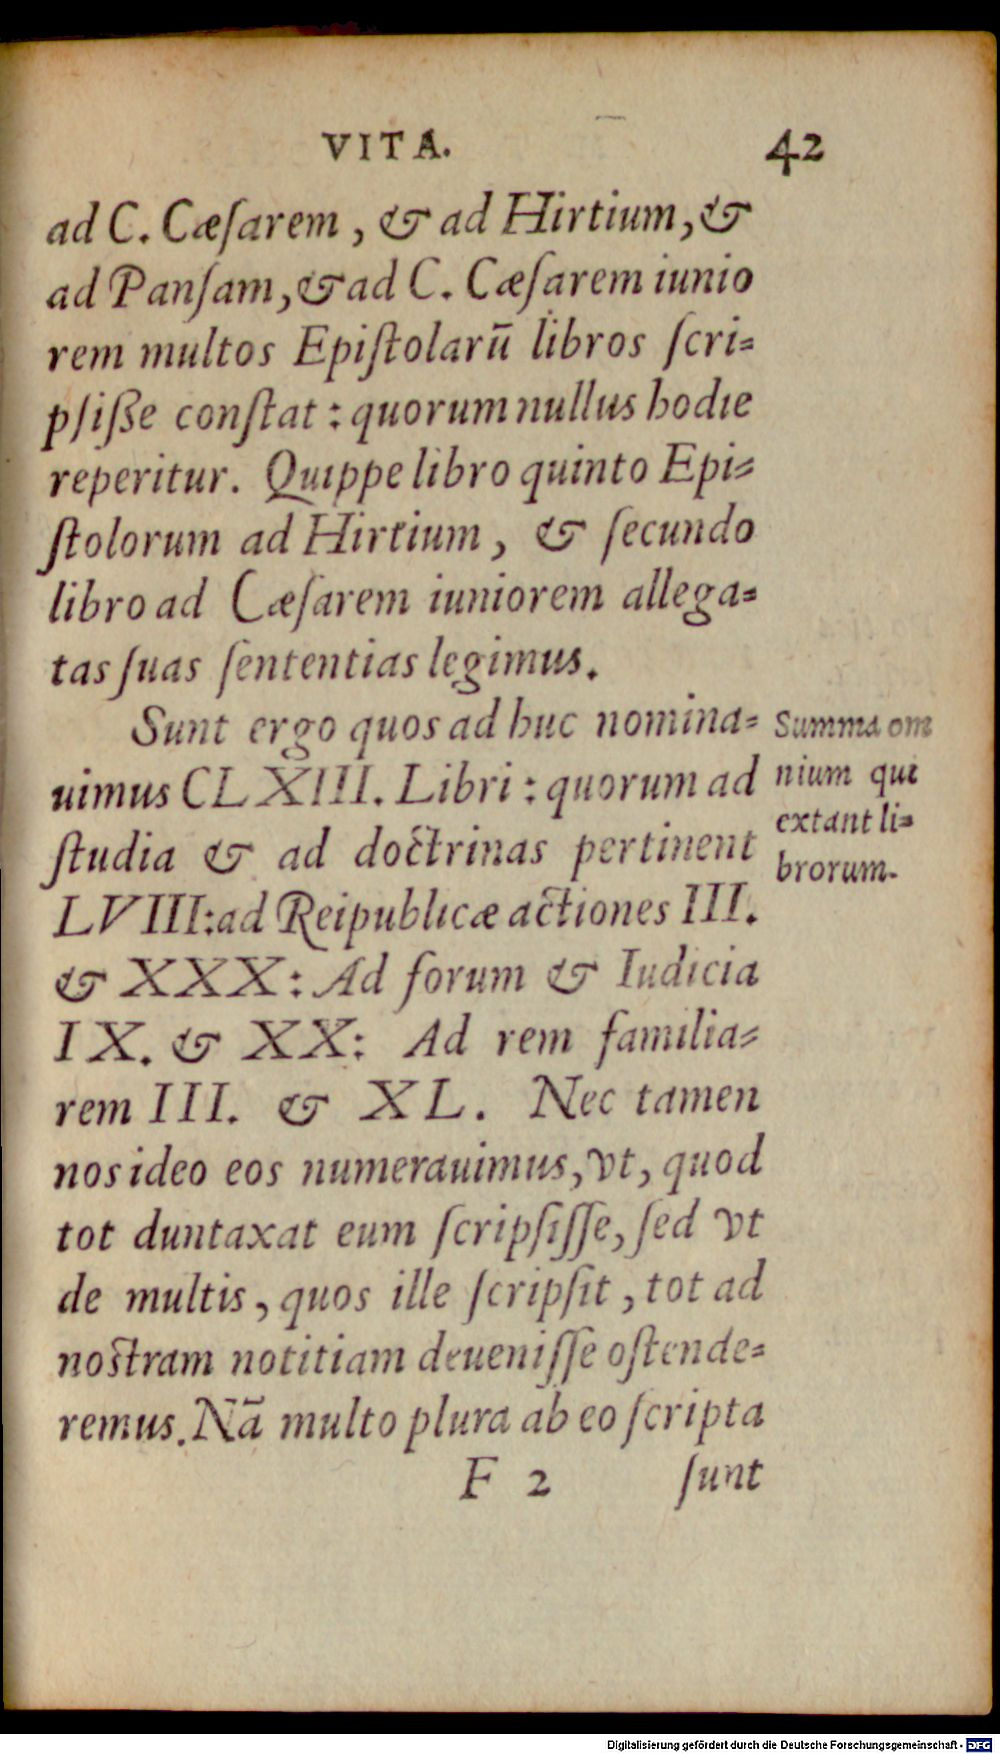 VITA. 42
ad C. Cæſarem, & ad Hirtium, &
ad Panſam, & ad C. Cæſarem iunio
rem multos Epiſtolarū libros ſcri-
pſiſſe conſtat: quorum nullus hodie
reperitur. Quippe libro quinto Epi-
ſtolorum ad Hirtium, & ſecundo
libro ad Cæſarem iuniorem allega-
tas ſuas ſententias legimus.
Sunt ergo quos ad huc nomina-
uimus CLXIII. Libri: quorum ad
ſtudia & ad doctrinas pertinent
LVIII: ad Reipublicæ actiones III.
& XXX: Ad forum & Iudicia
IX. & XX: Ad rem familia-
rem III. & XL. Nec tamen
nos ideo eos numerauimus, vt, quod
tot duntaxat eum ſcripſiſſe, ſed vt
de multis, quos ille ſcripſit, tot ad
noſtram notitiam deueniſſe oſtende-
remus. Nā multo plura ab eo ſcripta
F 2 ſunt
Summa om
nium qui
extant li-
brorum.
Digitalisierung gefördert durch die Deutsche Forschungsgemeinschaft - DFG